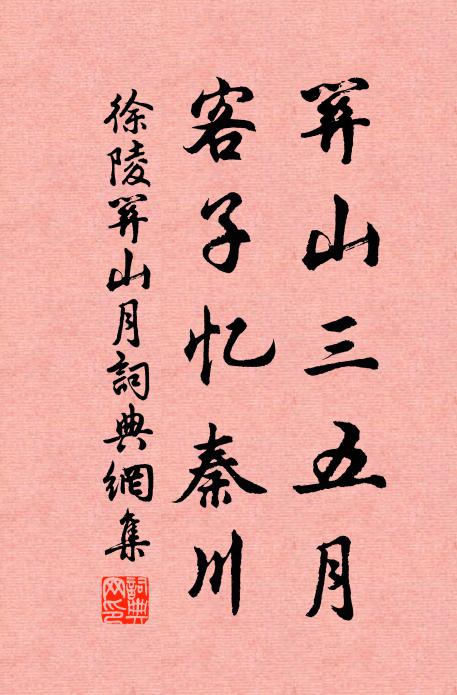 关山三五月
客子忆秦川
徐陵关山月詞典網集
詞典網印